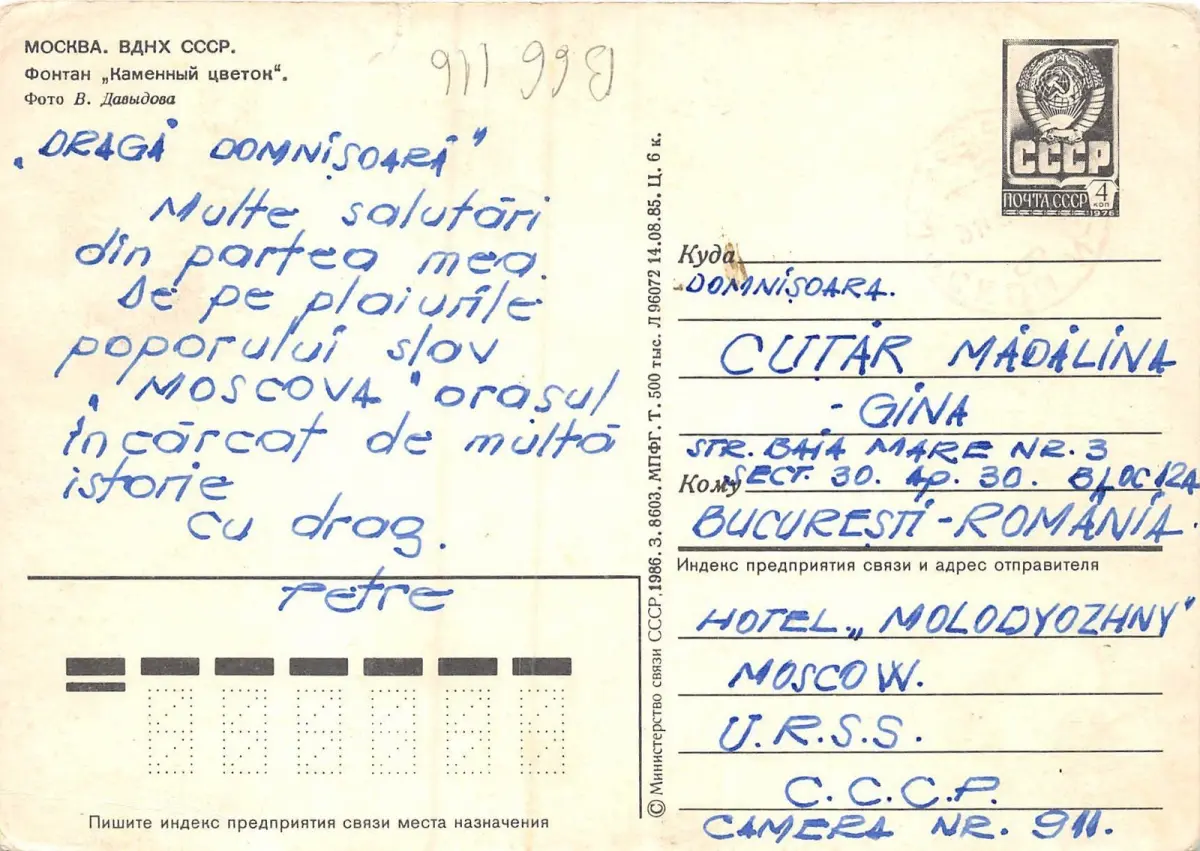 МОСКВА. ВДНХ СССР.
Фонтан „Каменный цветок“.
Фото В. Давыдова
„DRAGĂ DOMNIŞOARĂ"
Multe salutări
din partea mea.
De pe plaiurile
poporului slav
„MOSCOVA" oraşul
încărcat de multă
istorie
cu drag.
Petre
Пишите индекс предприятия связи места назначения
© Министерство связи СССР, 1986. З. 8603. МПФГ. Т. 500 тыс. Л 96072 14.08.85. Ц. 6 к.
СССР
ПОЧТА СССР 4 КОП
1976
Куда
DOMNIŞOARA.
CUŢĂR MĂDĂLINA
- GINA
STR. BAIA MARE NR. 3
Кому SECT. 30. Ap. 30. BLOC 12A
BUCUREŞTI - ROMÂNIA.
Индекс предприятия связи и адрес отправителя
HOTEL „MOLODYOZHNY"
MOSCOW.
U.R.S.S.
C.C.C.P.
CAMERA NR. 911.